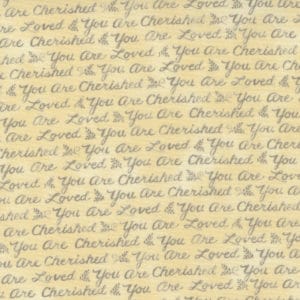 Are Cherished You Are Loved
Are Loved You Are Cherished
Are Cherished You Are Loved
Are Loved You Are Cherished
Are Cherished You Are Loved
Are Loved You Are Cherished
Are Cherished You Are Loved
Are Loved You Are Cherished
Cherished You Are Loved You
Are Loved You Are Cherished
Cherished You Are Loved You
Loved You Are Cherished You
Cherished You Are Loved You
Loved You Are Cherished